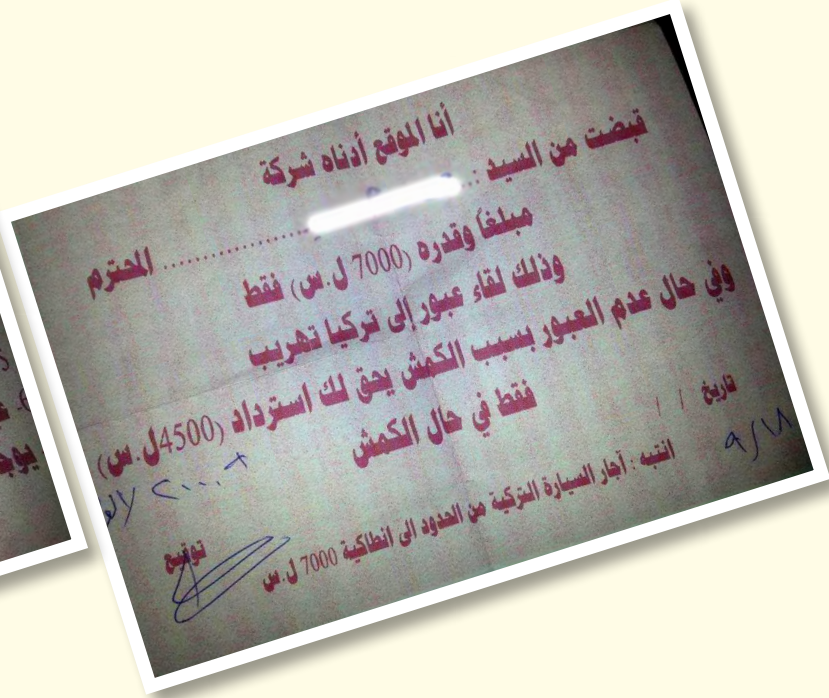 أنا الموقع أدناه شركة
قبضت من السيد :..
.................... المحترم
مبلغاً وقدره (7000 ل.س) فقط
وذلك لقاء عبور إلى تركيا تهريب
وفي حال عدم العبور بسبب الكمش يحق لك استرداد (4500ل.س)
فقط في حال الكمش
تاريخ / /
٩/١٨
انتبه : آجار السيارة التركية من الحدود الى انطاكية 7000 ل.س
توقيع